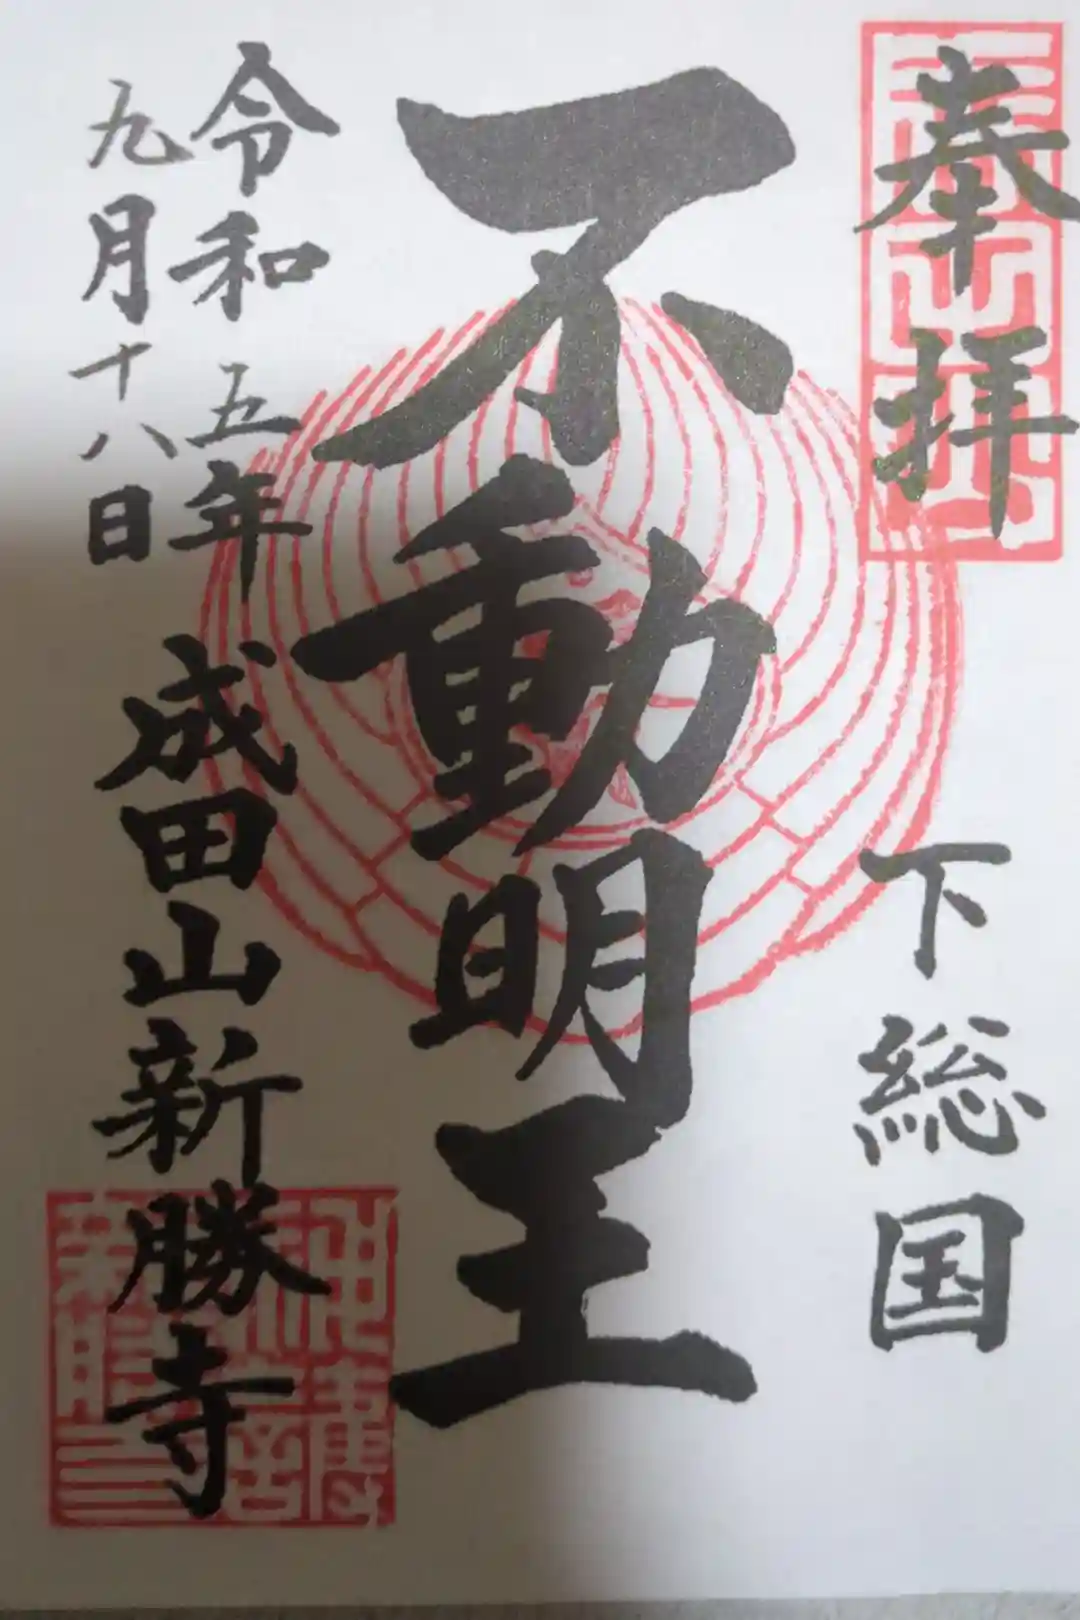 奉拝
下総国
不動明王
令和五年
九月十八日
成田山新勝寺